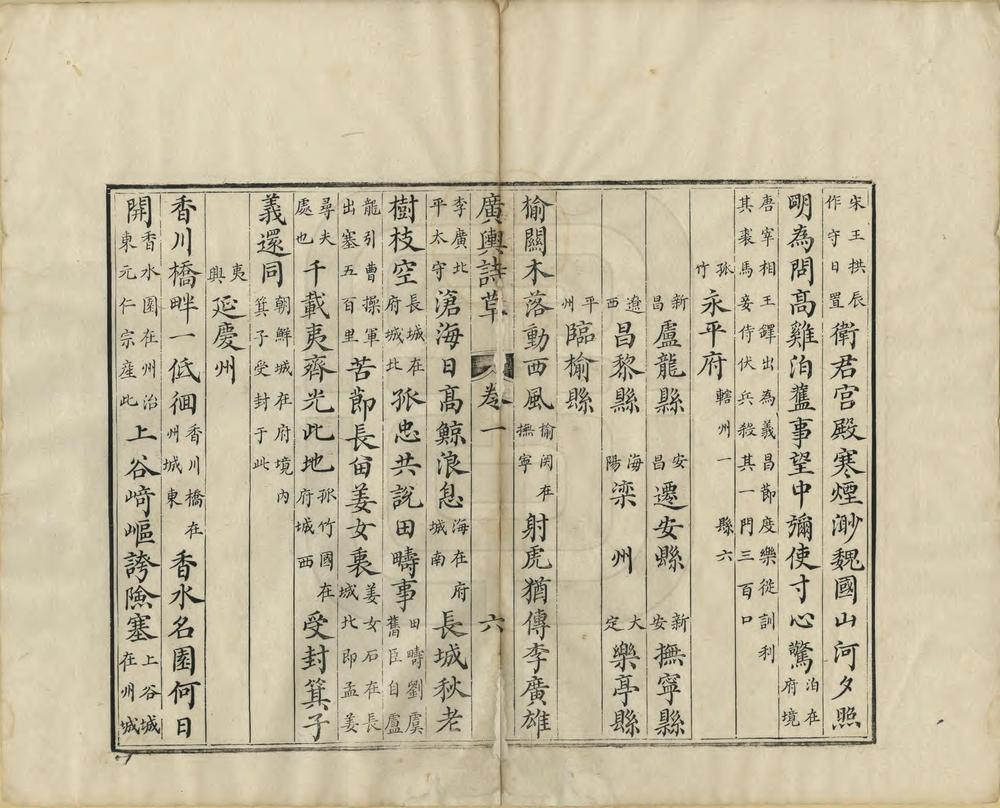 宋王拱辰作守日置衛君宮殿寒煙渺魏國山河夕照
明為問高雞泊舊事望中彌使寸心驚泊在府境
唐宰相王鐸出為義昌節度樂從訓利其裘馬妾侍伏兵殺其一門三百口
孤竹永平府轄州一縣六
新昌盧龍縣 安昌遷安縣 新安撫寧縣
遼西昌黎縣 海陽滦州 大定樂亭縣
平州臨榆縣
榆關木落動西風榆関在撫寧射虎猶傳李廣雄
廣輿詩草 卷一 六
李廣北平太守滄海日高鯨浪息海在府城南長城秋老
樹枝空長城在府城北孤忠共說田疇事田疇劉虞舊臣自盧
龍引曹操軍出塞五百里苦節長畱姜女裏姜女石在長城北即孟姜
尋夫處也千載夷齊光此地孤竹國在府城西受封箕子
義還同朝鮮城在府境內箕子受封于此
夷輿延慶州
香川橋畔一低徊香川橋在州城東香水名園何日
開香水園在州治東元仁宗產此上谷﨑嶇誇險塞上谷城在州城